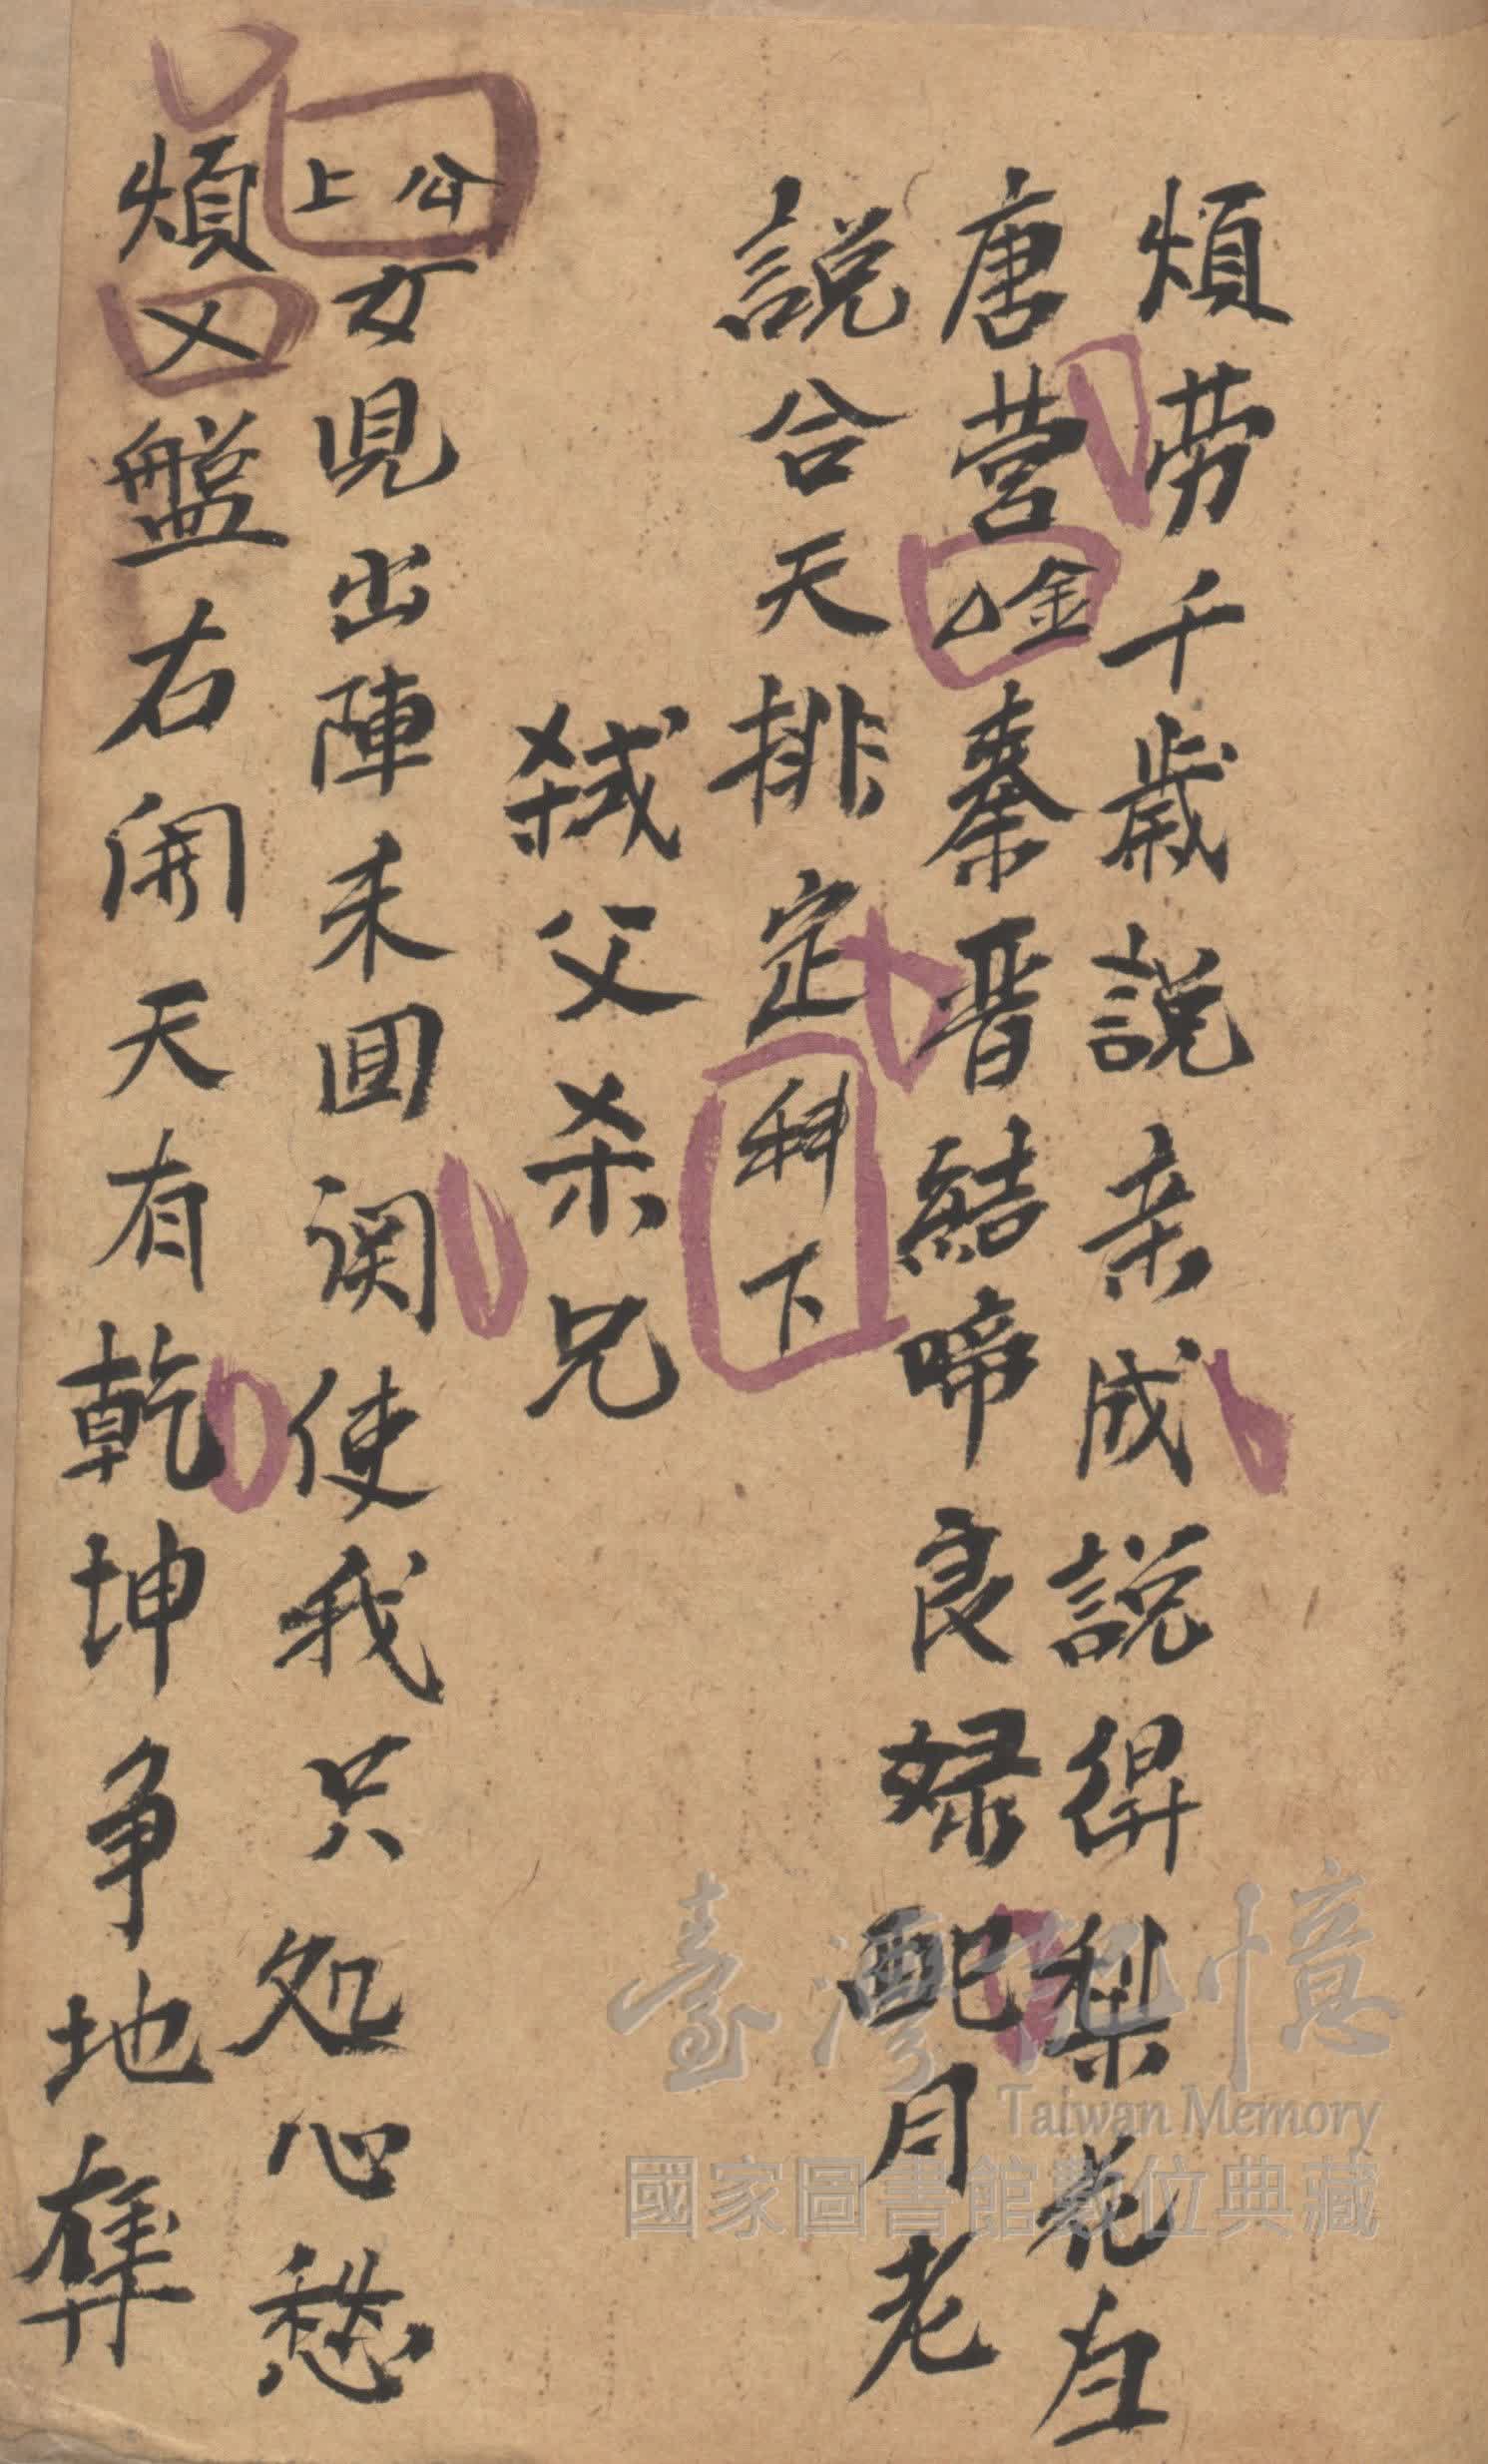 煩劳千歲說亲成說得梨花在
唐营金厶秦晋結啼良緣配月老
說合天排定科下
弑父杀兄
公上女児出陣未囬误使我只処心愁
煩又盤古開天有乾坤争地奪
臺灣記憶
Taiwan Memory
國家圖書館數位典藏